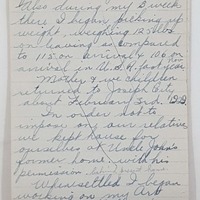 Also during my 3 week
there I began picking up
weight, weighing 125 lbs
on leaving as compared
to 115 on arrival
arrival in U.S.A. last year
Mother & we children
returned to Joseph City
about February 3rd. 1919
In order not to
impose on our relatives
we kept house for
ourselves at Uncle John's
former home, with his
permission
When settled I began
working on my Art